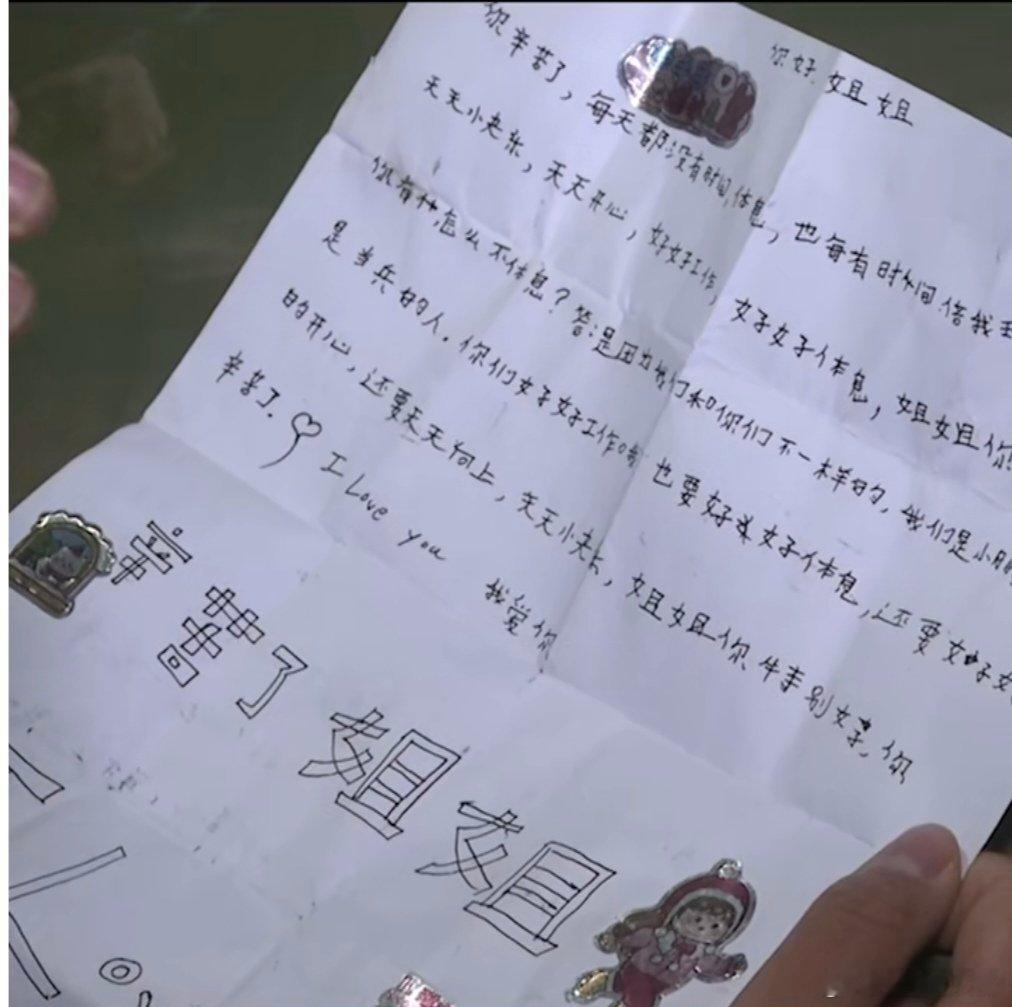 你好姐姐
你辛苦了，每天都没有时间休息，也每有时间陪我
天天小夫乐，天天开心，好好工作，好好休息，姐姐你
你有什怎么不休息？答：是因为他们和你们不一样的，我们是小
是当兵的人。你们好好工作哦 也要好好休息，还要好
的开心，还要天天向上，天天小夫乐，姐姐你 别 你
辛苦了。
I Love you 我爱你
辛苦了姐姐